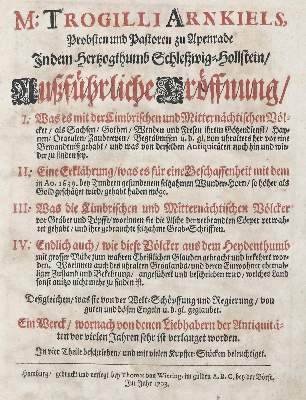 M: TROGILLI ARNKIELS,
Probsten und Pastoren zu Apenrade
In dem Hertzogthumb Schleßwig-Hollstein/
Außführliche Eröffnung/
I. Was es mit der Cimbrischen und Mitternächtischen Völ-
cker/ als Sachsen/ Gothen/ Wenden und Fresen ihrem Götzendienst/ Hay-
nen/ Oraculen/ Zaubereyen/ Begräbnissen u. d. gl. von uhralters her vor eine
Bewandtniß gehabt/ und was von derselben Antiquitäten noch hin und wie-
der zu finden sey.
II. Eine Erklährung/ was es für eine Beschaffenheit mit dem
in Ao. 1639. bey Tundern gefundenen Horn/ so höher als
Gold geschätzet wird/ gehabt haben möge.
III. Was die Cimbrischen und Mitternächtischen Völcker
vor Gräber und Töpffe/ worinnen sie die Asche der verbrandten Cörper verwah-
ret gehabt/ und ihre gebrauchte seltzahme Grab-Schrifften.
IV. Endlich auch/ wie diese Völcker aus dem Heydenthumb
mit grosser Mühe zum wahren Christlichen Glauben gebracht und bekehret wor-
den. Worinnen auch des uhralten Grönlandes/ und deren Einwohner ehema-
liger Zustand und Bekehrung/ angeführet und beschrieben wird/ welches Land
sonst anitzo nicht mehr zu finden ist.
Deßgleichen/ was sie von der Welt-Schöpffung und Regierung/ von
guten und bösen Engeln u. d. gl. geglaubet.
Ein Werck/ wornach von denen Liebhabern der Antiquitä-
ten vor vielen Jahren sehr ist verlanget worden.
In vier Theile beschrieben/ und mit vielen Kupffer-Stücken beleuchtiget.
Hamburg/ gedruckt und verlegt bey Thomas von Wiering/ im gülden A, B, C, bey der Börse.
Im Jahr 1703.